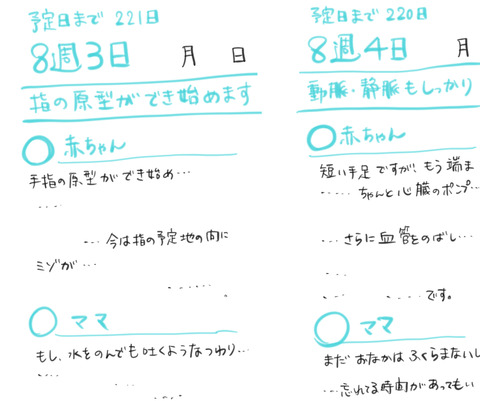 予定日まで 221日
8週3日 月 日
指の原型ができ始めます
赤ちゃん
手指の原型ができ始め…
....
... 今は指の予定地の間に
ミゾが...
......。
ママ
もし、水をのんでも吐くようなつわり...
....
.... .
予定日まで 220日
8週4日 月
動脈・静脈もしっかり
赤ちゃん
短い手足ですが、もう端ま
..... ちゃんと心臓のポンプ...
... さらに血管をのばし...
...
... .....です。
ママ
まだおなかはふくらまないし
...忘れてる時間があってもい